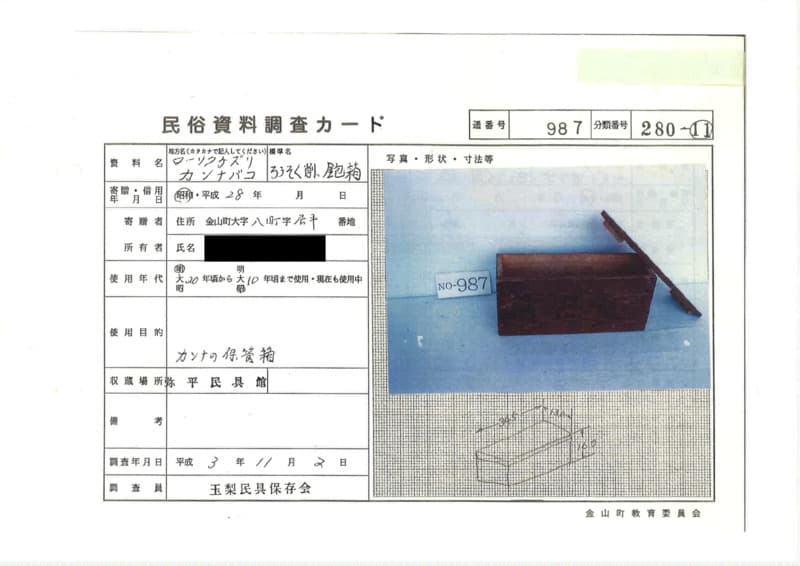 民俗資料調査カード
通番号 987 分類番号 280-11
資料名
地方名(カタカナで記入してください)
ローソクケズリ
カンナバコ
標準名
ろうそく削り鉋箱
寄贈・借用年月日 昭和・平成 28 年 月 日
寄贈者 住所 金山町大字八町字居平 番地
所有者 氏名
使用年代 明大昭 20 年頃から 明大昭 10 年頃まで使用・現在も使用中
使用目的
カンナの保管箱
収蔵場所 弥平民具館
備考
調査年月日 平成 3 年 11 月 2 日
調査員 玉梨民具保存会
写真・形状・寸法等
NO-987
34.5
16.0
金山町教育委員会